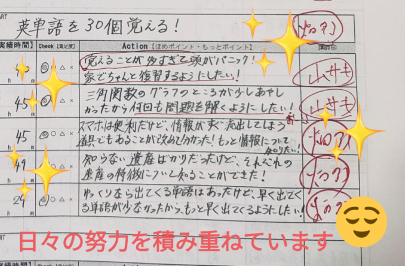 英単語を30個覚える!
実績時間 Check【満足度】 Action【ほめポイント・もっとポイント】
覚えることが多すぎて頭がパニック!
家でちゃんと復習するようにしたい!
三角関数のグラフのところが少しあやし
45 かったから何回も問題を解くようにしたい!
45 スマホは便利だけど、情報がすぐ流出してしまう
道具でもあることが改めて分かった!もっと情報について知りたい!
49 知らない遺産ばかりだったけど、それぞれの
遺産の特徴について知ることができた!
24 ゆっくりなら出てくる単語はあったけど、早く出てく
る単語が少なかったから、もっと早く出てくるようにしたい!
日々の努力を積み重ねています